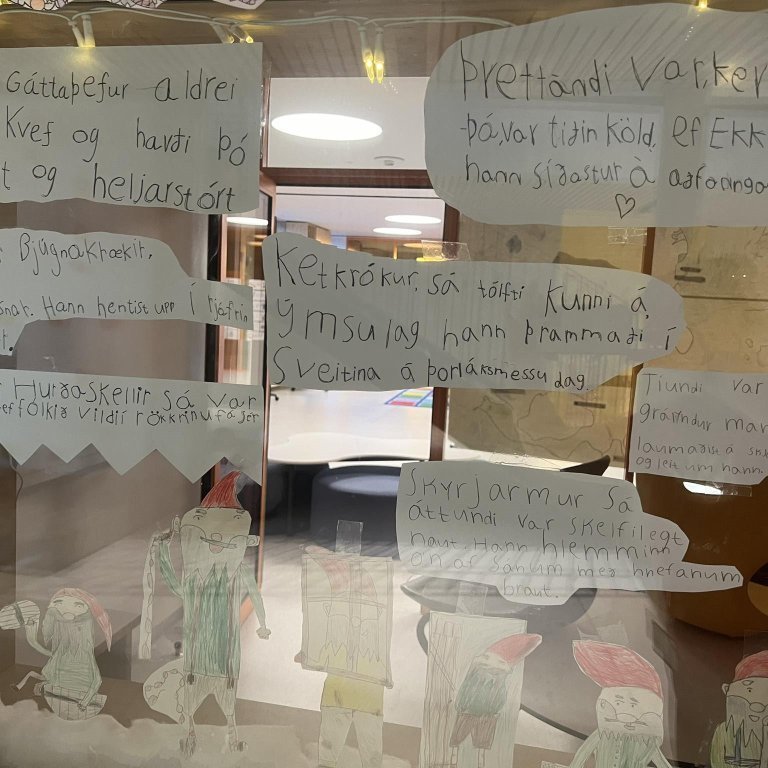 Gáttaþefur aldrei
Kvef og havði þó
t og heljarstórt
Þrettándi var, ker
þá, var tiðin köld, ef EKK
hann síðastur à
Bjúgnakrækir,
snar. Hann hentist upp í rjáfrin
Ketkrókur, sá tólfti kunni á
ýmsu lag hann þrammaði í
Sveitina á þorláksmessu dag.
Hurðaskellir sá var
ef fólkið vildi í rökkrinu fá sér
Tíundi var
laumaðist á
og leit um hann.
Skyrjarmur sá
áttundi var skelfilegt
naut. Hann hlemminn
ön af sánum með hnefanum
braut.